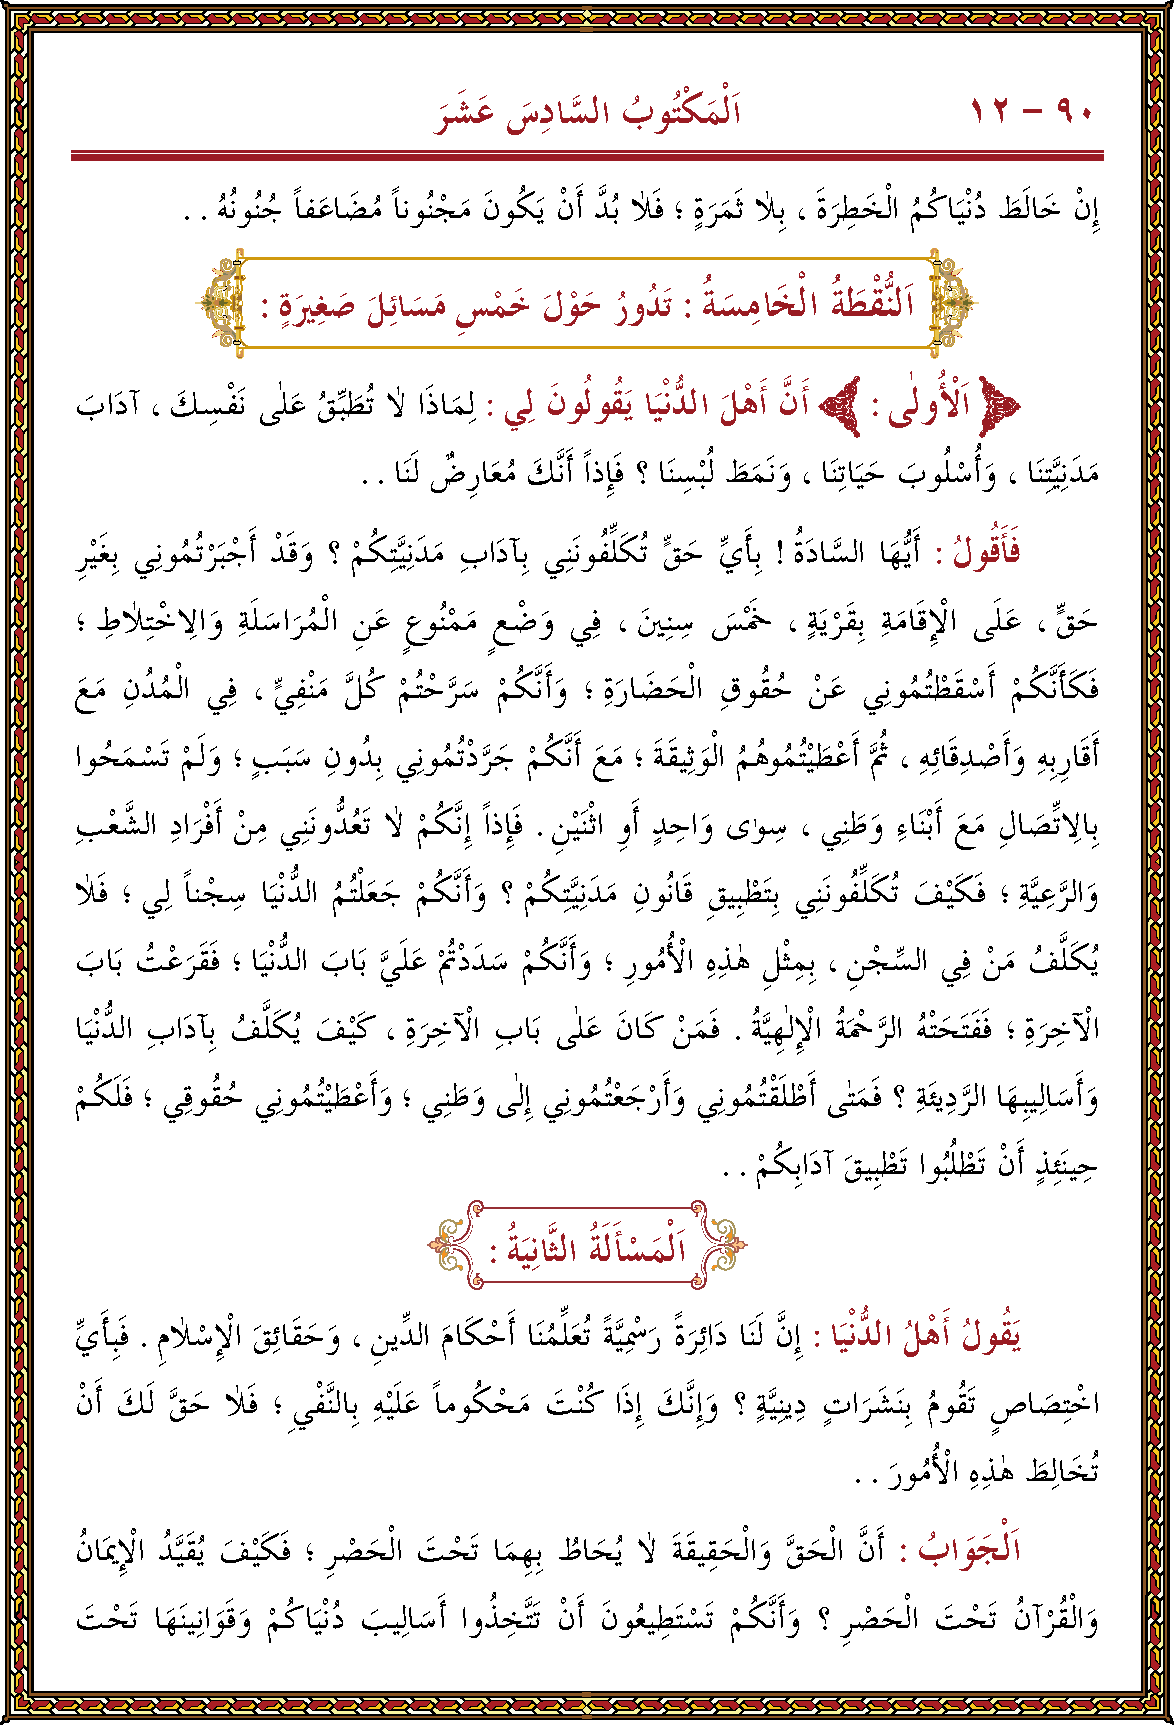 ٩٠ – ١٢ اَلْمَكْتُوبُ السَّادِسَ عَشَرَ
إِنْ خَالَطَ دُنْيَاكُمُ الْخَطِرَةَ ، بِلَا ثَمَرَةٍ ؛ فَلَا بُدَّ أَنْ يَكُونَ مَجْنُوناً مُضَاعَفاً جُنُونُهُ . .
اَلنُّقْطَةُ الْخَامِسَةُ : تَدُورُ حَوْلَ خَمْسِ مَسَائِلَ صَغِيرَةٍ :
اَلْأُولٰى : أَنَّ أَهْلَ الدُّنْيَا يَقُولُونَ لِي : لِمَاذَا لَا تُطَبِّقُ عَلٰى نَفْسِكَ ، آدَابَ
مَدَنِيَّتِنَا ، وَأُسْلُوبَ حَيَاتِنَا ، وَنَمَطَ لُبْسِنَا ؟ فَإِذاً أَنَّكَ مُعَارِضٌ لَنَا . .
فَأَقُولُ : أَيُّهَا السَّادَةُ ! بِأَيِّ حَقٍّ تُكَلِّفُونَنِي بِآدَابِ مَدَنِيَّتِكُمْ ؟ وَقَدْ أَجْبَرْتُمُونِي بِغَيْرِ
حَقٍّ ، عَلَى الْإِقَامَةِ بِقَرْيَةٍ ، خَمْسَ سِنِينَ ، فِي وَضْعٍ مَمْنُوعٍ عَنِ الْمُرَاسَلَةِ وَالِاخْتِلَاطِ ؛
فَكَأَنَّكُمْ أَسْقَطْتُمُونِي عَنْ حُقُوقِ الْحَضَارَةِ ؛ وَأَنَّكُمْ سَرَّحْتُمْ كُلَّ مَنْفِيٍّ ، فِي الْمُدُنِ مَعَ
أَقَارِبِهِ وَأَصْدِقَائِهِ ، ثُمَّ أَعْطَيْتُمُوهُمُ الْوَثِيقَةَ ؛ مَعَ أَنَّكُمْ جَرَّدْتُمُونِي بِدُونِ سَبَبٍ ؛ وَلَمْ تَسْمَحُوا
بِالِاتِّصَالِ مَعَ أَبْنَاءِ وَطَنِي ، سِوٰى وَاحِدٍ أَوِ اثْنَيْنِ . فَإِذاً إِنَّكُمْ لَا تَعُدُّونَنِي مِنْ أَفْرَادِ الشَّعْبِ
وَالرَّعِيَّةِ ؛ فَكَيْفَ تُكَلِّفُونَنِي بِتَطْبِيقِ قَانُونِ مَدَنِيَّتِكُمْ ؟ وَأَنَّكُمْ جَعَلْتُمُ الدُّنْيَا سِجْناً لِي ؛ فَلَا
يُكَلَّفُ مَنْ فِي السِّجْنِ ، بِمِثْلِ هٰذِهِ الْأُمُورِ ؛ وَأَنَّكُمْ سَدَدْتُمْ عَلَيَّ بَابَ الدُّنْيَا ؛ فَقَرَعْتُ بَابَ
الْآخِرَةِ ؛ فَفَتَحَتْهُ الرَّحْمَةُ الْإِلٰهِيَّةُ . فَمَنْ كَانَ عَلٰى بَابِ الْآخِرَةِ ، كَيْفَ يُكَلَّفُ بِآدَابِ الدُّنْيَا
وَأَسَالِيبِهَا الرَّدِيئَةِ ؟ فَمَتٰى أَطْلَقْتُمُونِي وَأَرْجَعْتُمُونِي إِلٰى وَطَنِي ؛ وَأَعْطَيْتُمُونِي حُقُوقِي ؛ فَلَكُمْ
حِينَئِذٍ أَنْ تَطْلُبُوا تَطْبِيقَ آدَابِكُمْ . .
اَلْمَسْأَلَةُ الثَّانِيَةُ :
يَقُولُ أَهْلُ الدُّنْيَا : إِنَّ لَنَا دَائِرَةً رَسْمِيَّةً تُعَلِّمُنَا أَحْكَامَ الدِّينِ ، وَحَقَائِقَ الْإِسْلَامِ . فَبِأَيِّ
اخْتِصَاصٍ تَقُومُ بِنَشَرَاتٍ دِينِيَّةٍ ؟ وَإِنَّكَ إِذَا كُنْتَ مَحْكُوماً عَلَيْهِ بِالنَّفْيِ ؛ فَلَا حَقَّ لَكَ أَنْ
تُخَالِطَ هٰذِهِ الْأُمُورَ . .
اَلْجَوَابُ : أَنَّ الْحَقَّ وَالْحَقِيقَةَ لَا يُحَاطُ بِهِمَا تَحْتَ الْحَصْرِ ؛ فَكَيْفَ يُقَيَّدُ الْإِيمَانُ
وَالْقُرْآنُ تَحْتَ الْحَصْرِ ؟ وَأَنَّكُمْ تَسْتَطِيعُونَ أَنْ تَتَّخِذُوا أَسَالِيبَ دُنْيَاكُمْ وَقَوَانِينَهَا تَحْتَ